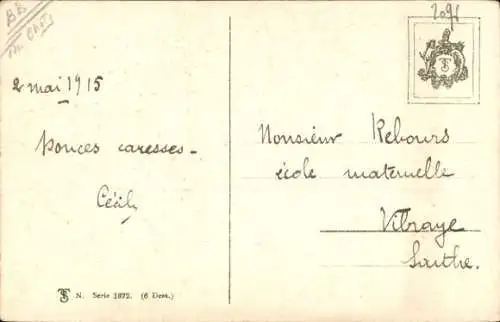 2091
2 mai 1915
Douces caresses -
Cécile
Monsieur Rebours
école maternelle
Vibraye
Sarthe.
TS N. Serie 1872. (6 Dess.)